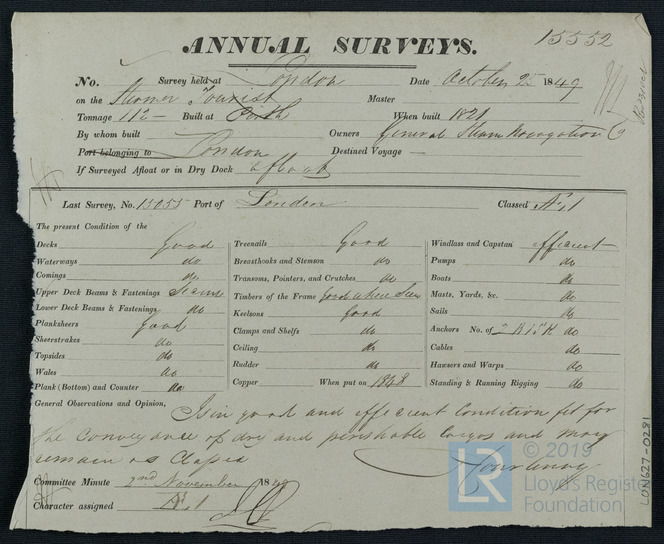 15552
ANNUAL SURVEYS.
No. Survey held at London Date October 25 1849
on the Steamer Tourist Master
Tonnage 112 — Built at Perth When built 1821
By whom built Owners General Steam Navigation Co
Port belonging to London Destined Voyage —
If Surveyed Afloat or in Dry Dock afloat
Last Survey, No. 15055 Port of London Classed Æ 1
The present Condition of the
Decks Good
Waterways do
Comings do
Upper Deck Beams & Fastenings Seams
Lower Deck Beams & Fastenings do
Planksheers Good
Sheerstrakes do
Topsides do
Wales do
Plank (Bottom) and Counter do
Treenails Good
Breasthooks and Stemson do
Transoms, Pointers, and Crutches do
Timbers of the Frame Good where Seen
Keelsons Good
Clamps and Shelfs do
Ceiling do
Rudder do
Copper When put on 1848
Windlass and Capstan efficient
Pumps do
Boats do
Masts, Yards, &c. do
Sails do
Anchors No. of 2 B 1 S 1 K do
Cables do
Hawsers and Warps do
Standing & Running Rigging do
General Observations and Opinion, Is in good and efficient Condition fit for
the Conveyance of dry and perishable Cargos and may
remain as Classed
Courtenay
Committee Minute 2nd November 1849
Character assigned Æ 1
LON627-0281
© 2019
LR
Lloyd's Register
Foundation